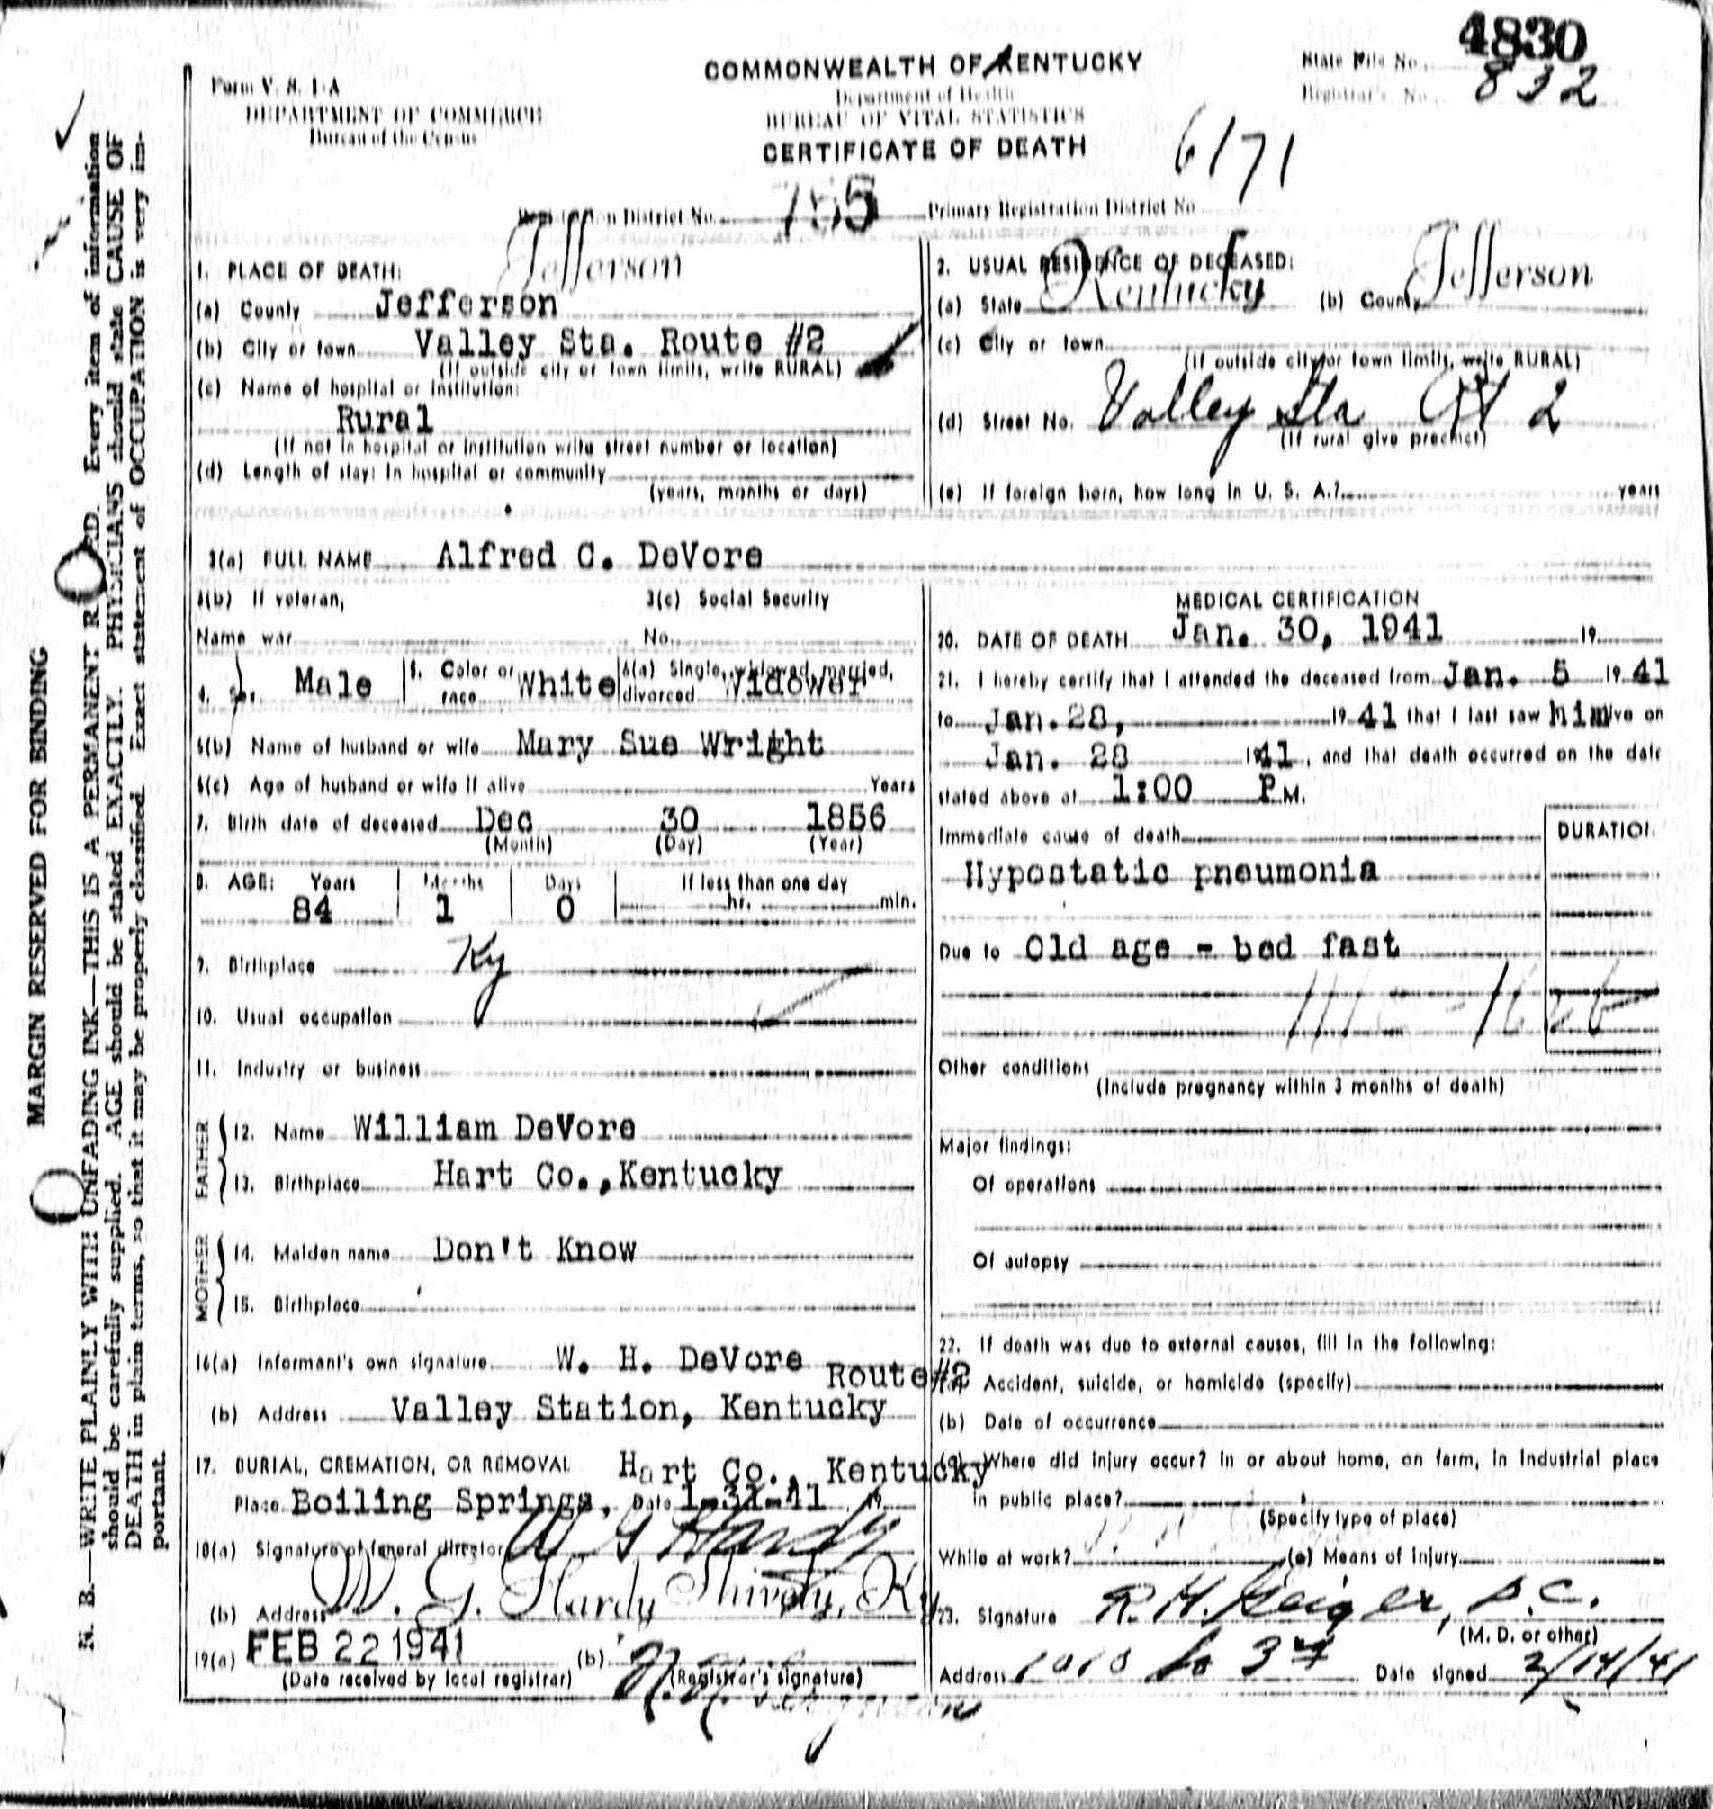 4830
COMMONWEALTH OF KENTUCKY
State File No.
Form V. S. 1-A
Department of Health
Registrar's No. 832
DEPARTMENT OF COMMERCE
BUREAU OF VITAL STATISTICS
Bureau of the Census
CERTIFICATE OF DEATH
6171
Registration District No. 755 Primary Registration District No.
Jefferson
1. PLACE OF DEATH:
(a) County Jefferson
(b) City or town Valley Sta. Route #2
(If outside city or town limits, write RURAL)
(c) Name of hospital or institution:
Rural
(If not in hospital or institution write street number or location)
(d) Length of stay: In hospital or community
(years, months or days)
2. USUAL RESIDENCE OF DECEASED:
(a) State Kentucky (b) County Jefferson
(c) City or town
(If outside city or town limits, write RURAL)
(d) Street No. Valley Sta Rt 2
(If rural give precinct)
(e) If foreign born, how long in U. S. A.? years
3(a) FULL NAME Alfred C. DeVore
3(b) If veteran, 3(c) Social Security
Name war No.
4. Sex Male 5. Color or race White 6(a) Single, widowed, married, divorced Widower
6(b) Name of husband or wife Mary Sue Wright
6(c) Age of husband or wife if alive Years
7. Birth date of deceased Dec 30 1856
(Month) (Day) (Year)
8. AGE: Years Months Days If less than one day
84 1 0 hr. min.
9. Birthplace Ky
10. Usual occupation
11. Industry or business
FATHER
12. Name William DeVore
13. Birthplace Hart Co., Kentucky
MOTHER
14. Maiden name Don't Know
15. Birthplace
16(a) Informant's own signature W. H. DeVore
Route #2
(b) Address Valley Station, Kentucky
17. BURIAL, CREMATION, OR REMOVAL Hart Co., Kentucky
Place Boiling Springs, Date 1-31-41 19
18(a) Signature of funeral director W G Hardy
W. G. Hardy
(b) Address Ky
19(a) FEB 22 1941 (b)
(Date received by local registrar) (Registrar's signature)
MEDICAL CERTIFICATION
20. DATE OF DEATH Jan. 30, 1941 19
21. I hereby certify that I attended the deceased from Jan. 5 19 41
to Jan. 28, 19 41 that I last saw him alive on
Jan. 28 19 41, and that death occurred on the date
stated above at 1:00 P M.
Immediate cause of death DURATION
Hypostatic pneumonia
Due to Old age - bed fast
Other conditions
(Include pregnancy within 3 months of death)
Major findings:
Of operations
Of autopsy
22. If death was due to external causes, fill in the following:
(a) Accident, suicide, or homicide (specify)
(b) Date of occurrence
(c) Where did injury occur? In or about home, on farm, in industrial place
in public place?
(Specify type of place)
While at work? (e) Means of injury
23. Signature R. H. Geiger, D.C.
(M. D. or other)
Address 1018 So 3rd Date signed 2/14/41
MARGIN RESERVED FOR BINDING
N. B.—WRITE PLAINLY WITH UNFADING INK—THIS IS A PERMANENT RECORD. Every item of information
should be carefully supplied. AGE should be stated EXACTLY. PHYSICIANS should state CAUSE OF
DEATH in plain terms, so that it may be properly classified. Exact statement of OCCUPATION is very im-
portant.